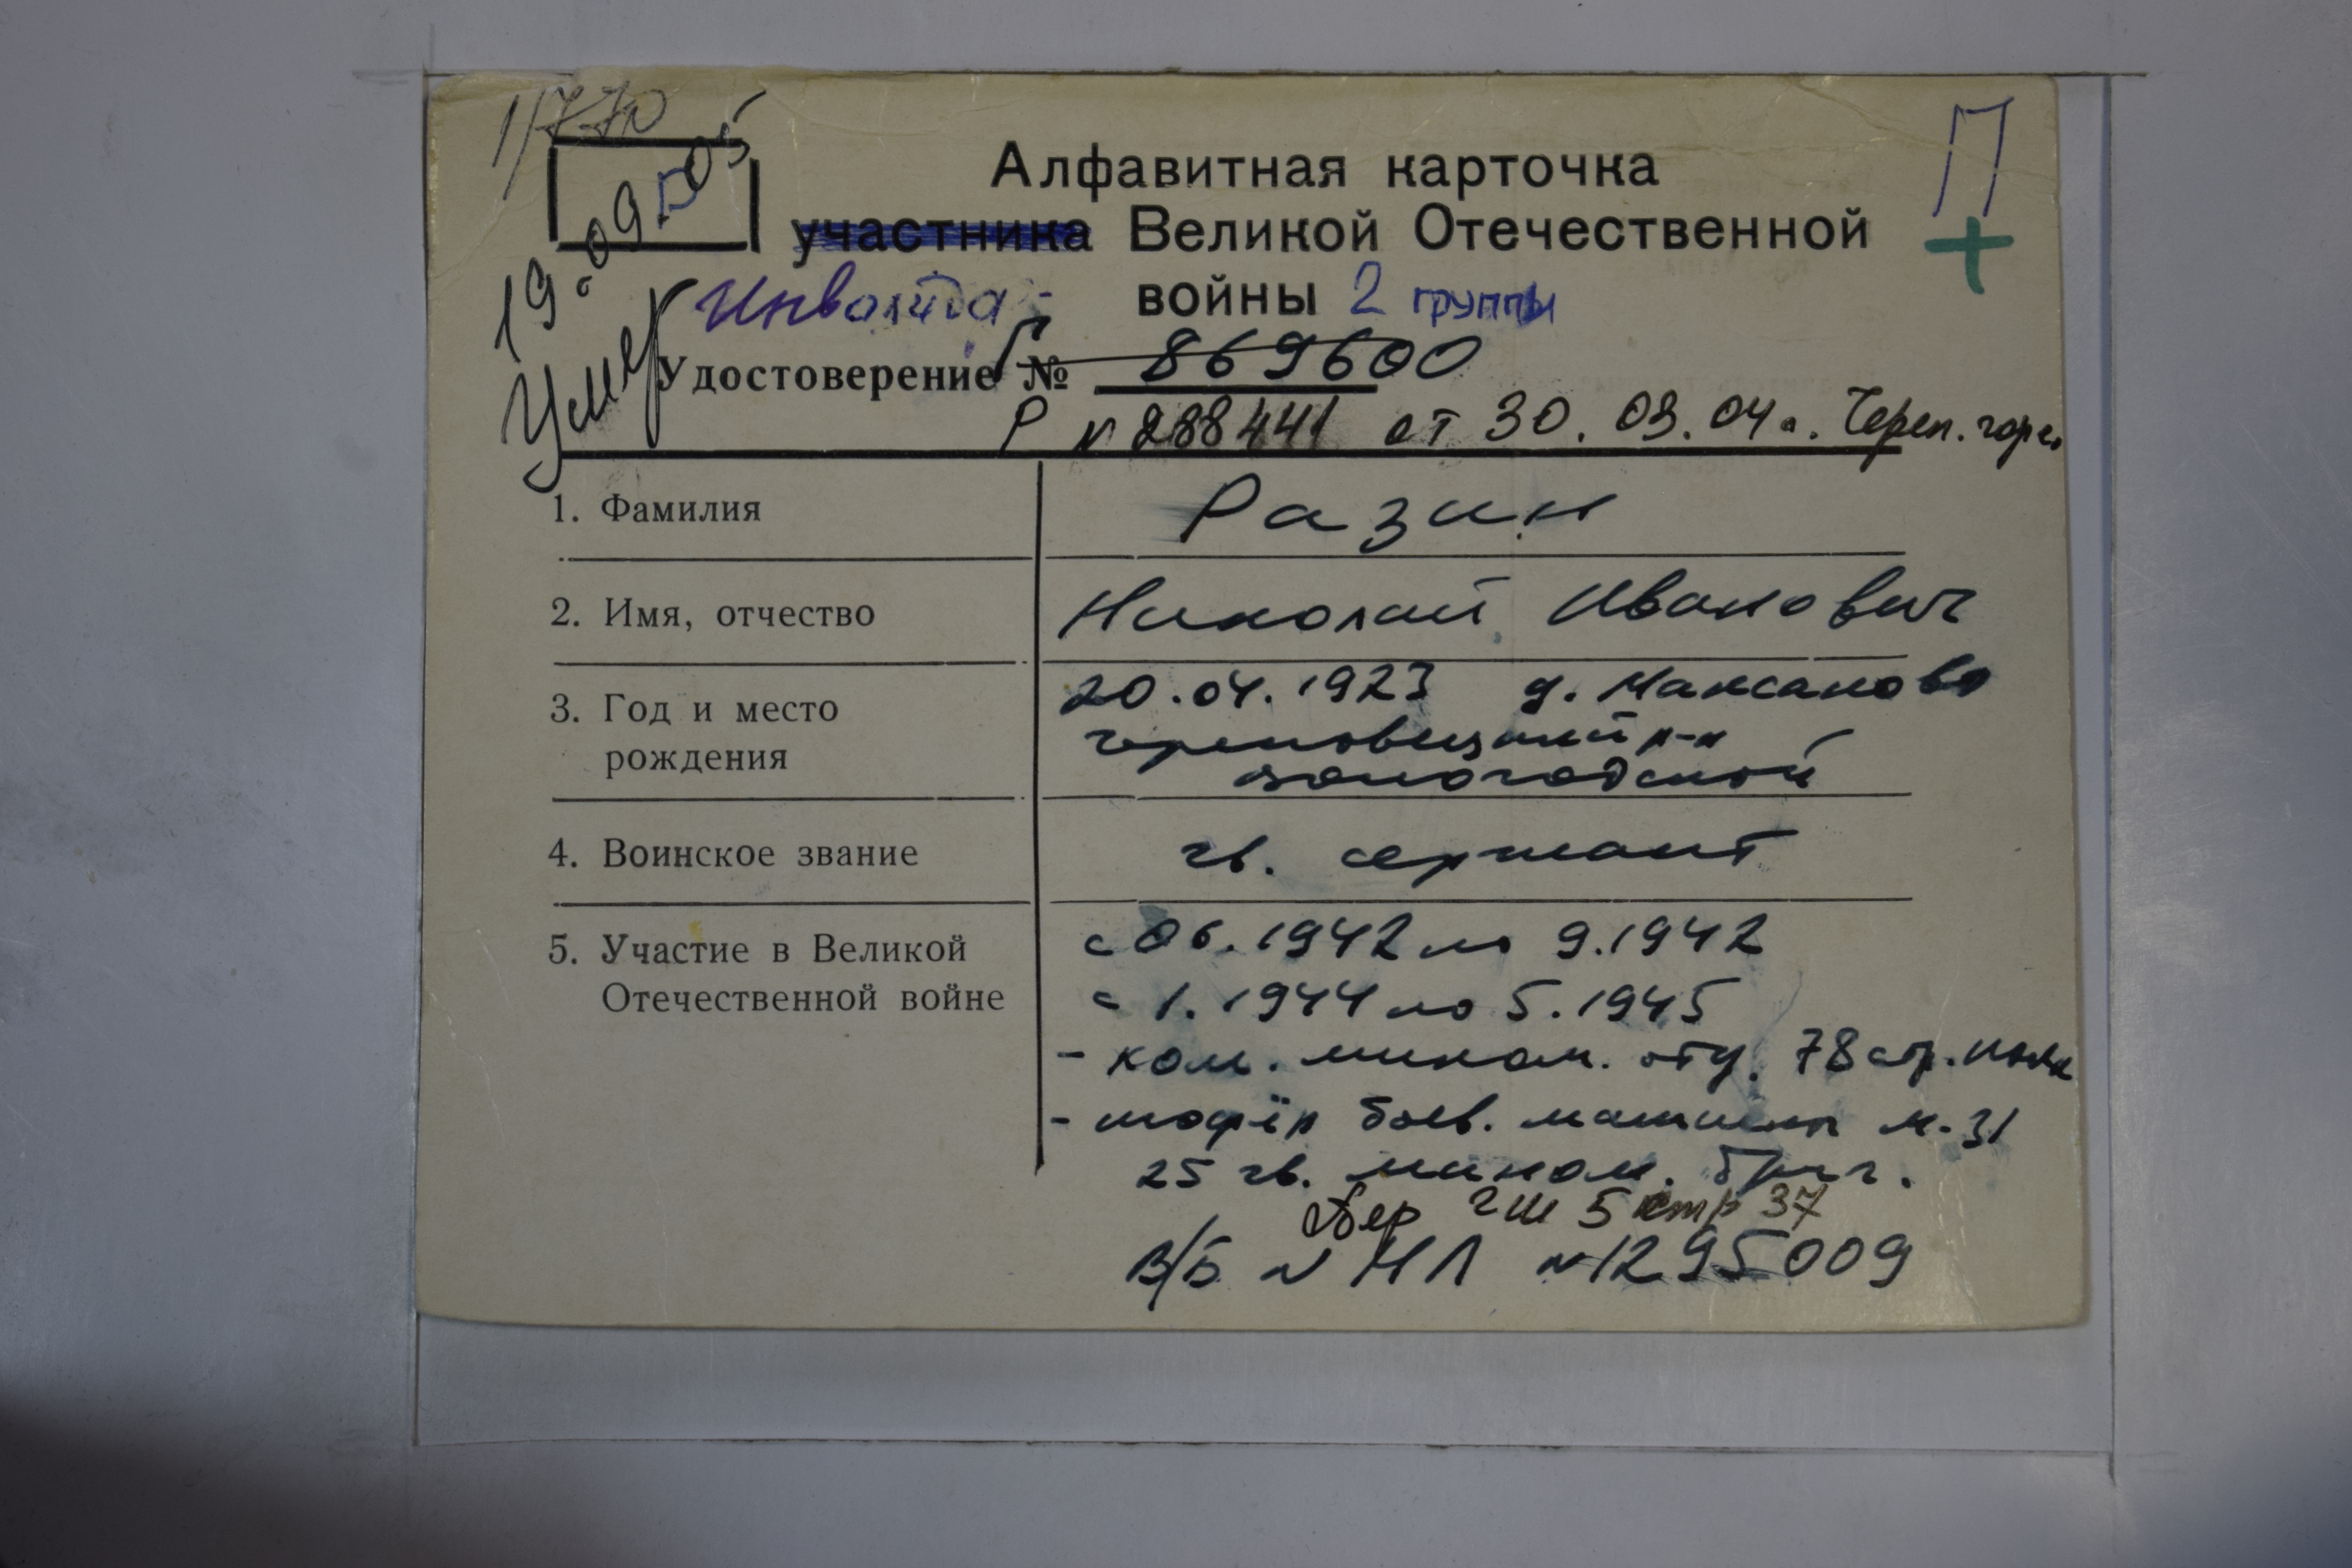 1/770
П
Алфавитная карточка
участника Великой Отечественной
Инвалида войны 2 группы
19.09.05
Умер
Удостоверение № 869600
Р № 288441 от 30.03.04г. Череп. гор
1. Фамилия Разин
2. Имя, отчество Николай Иванович
3. Год и место 20.04.1923 д. Максаково
рождения Череповецкий р-н
Вологодской
4. Воинское звание гв. сержант
5. Участие в Великой с 06.1942 по 9.1942
Отечественной войне с 1.1944 по 5.1945
- ком. мином. отд. 78 стр. полк
- шофёр боев. машины М-31
25 гв. мином. бриг.
Пер ГШ 5 стр 37
В/Б № НЛ № 1295009